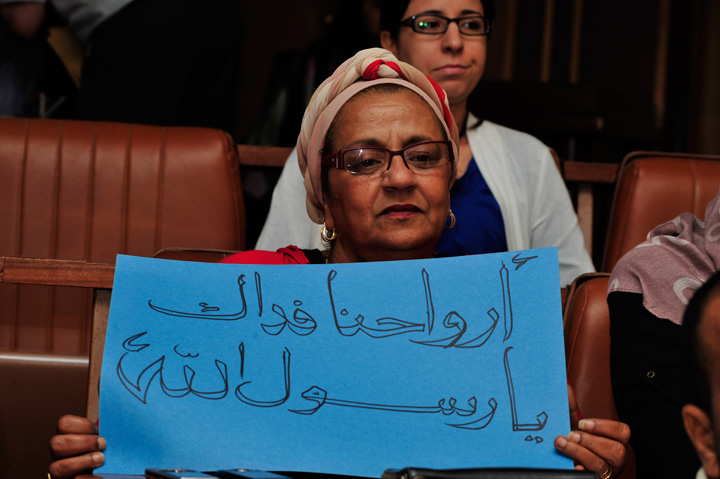 أرواحنا فداك
يا رسول الله